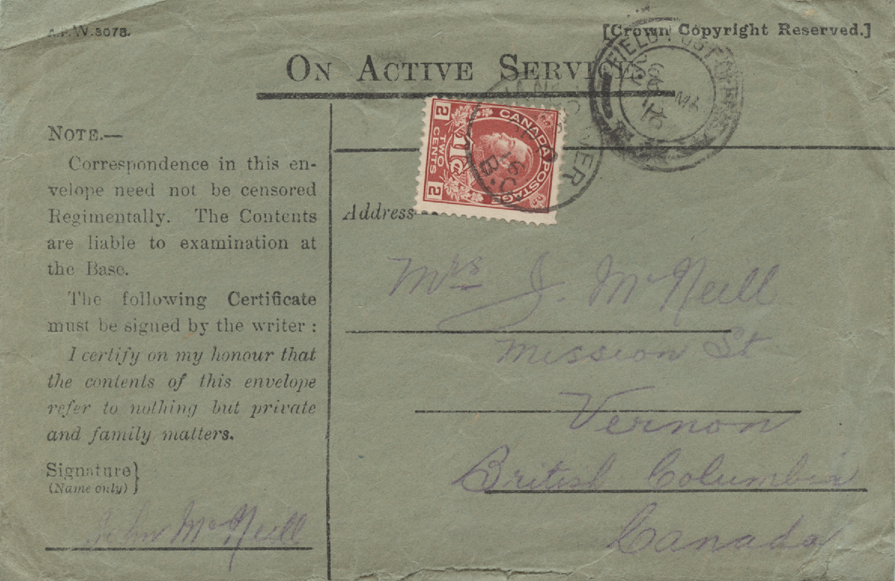 A.F.W.3078.
[Crown Copyright Reserved.]
ON ACTIVE SERVICE.
NOTE.—
Correspondence in this en-
velope need not be censored
Regimentally. The Contents
are liable to examination at
the Base.
The following Certificate
must be signed by the writer :
I certify on my honour that
the contents of this envelope
refer to nothing but private
and family matters.
Signature}
(Name only)
John McNeill
FIELD POST
CANADA POSTAGE
2 TWO CENTS 2
1Tc
B.C.
Address
Mrs J. McNeill
Mission St
Vernon
British Columbia
Canada